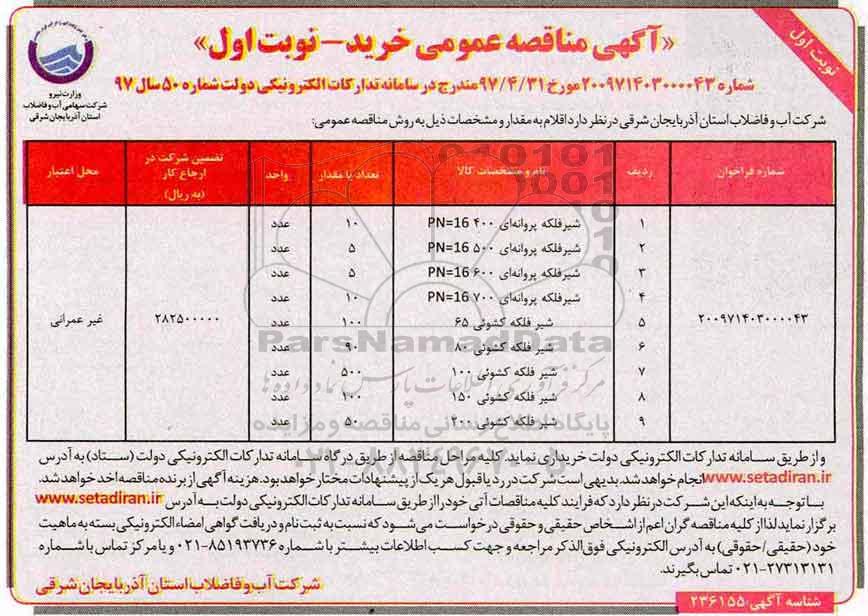 نوبت اول
«آگهی مناقصه عمومی خرید - نوبت اول»
وزارت نیرو
شرکت سهامی آب و فاضلاب
استان آذربایجان شرقی
شماره ۲۰۰۹۷۱۴۰۳۰۰۰۰۴۳ مورخ ۹۷/۴/۳۱ مندرج در سامانه تدارکات الکترونیکی دولت شماره ۵۰ سال ۹۷
شرکت آب و فاضلاب استان آذربایجان شرقی در نظر دارد اقلام به مقدار و مشخصات ذیل به روش مناقصه عمومی:
شماره فراخوان ردیف نام و مشخصات کالا تعداد یا مقدار واحد تضمین شرکت در ارجاع کار (به ریال) محل اعتبار
۱ شیرفلکه پروانه‌ای ۴۰۰ PN=16 ۱۰ عدد
۲ شیرفلکه پروانه‌ای ۵۰۰ PN=16 ۵ عدد
۳ شیرفلکه پروانه‌ای ۶۰۰ PN=16 ۵ عدد
۴ شیرفلکه پروانه‌ای ۷۰۰ PN=16 ۱۰ عدد
۲۰۰۹۷۱۴۰۳۰۰۰۰۴۳ ۵ شیر فلکه کشوئی ۶۵ ۱۰۰ عدد ۲۸۲۵۰۰۰۰۰ غیر عمرانی
۶ شیر فلکه کشوئی ۸۰ ۹۰ عدد
۷ شیر فلکه کشوئی ۱۰۰ ۵۰۰ عدد
۸ شیر فلکه کشوئی ۱۵۰ ۱۰۰ عدد
۹ شیر فلکه کشوئی ۲۰۰ ۵۰ عدد
ParsNamadData
مرکز فرآوری اطلاعات پارس نماد داده ها
پایگاه اطلاع رسانی مناقصه و مزایده
۰۲۱-۸۸۳۴۹۶۷۰-۵
و از طریق سامانه تدارکات الکترونیکی دولت خریداری نماید. کلیه مراحل مناقصه از طریق درگاه سامانه تدارکات الکترونیکی دولت (ستاد) به آدرس
www.setadiran.ir انجام خواهد شد. بدیهی است شرکت در رد یا قبول هر یک از پیشنهادات مختار خواهد بود. هزینه آگهی از برنده مناقصه اخذ خواهد شد.
با توجه به اینکه این شرکت در نظر دارد که فرایند کلیه مناقصات آتی خود را از طریق سامانه تدارکات الکترونیکی دولت به آدرس www.setadiran.ir
برگزار نماید لذا از کلیه مناقصه گران اعم از اشخاص حقیقی و حقوقی درخواست می‌شود که نسبت به ثبت نام و دریافت گواهی امضاء الکترونیکی بسته به ماهیت
خود (حقیقی/حقوقی) به آدرس الکترونیکی فوق‌الذکر مراجعه و جهت کسب اطلاعات بیشتر با شماره ۸۵۱۹۳۷۳۶-۰۲۱ و یا مرکز تماس با شماره
۲۷۳۱۳۱۳۱-۰۲۱ تماس بگیرند.
شرکت آب و فاضلاب استان آذربایجان شرقی
شناسه آگهی: ۲۳۶۱۵۵